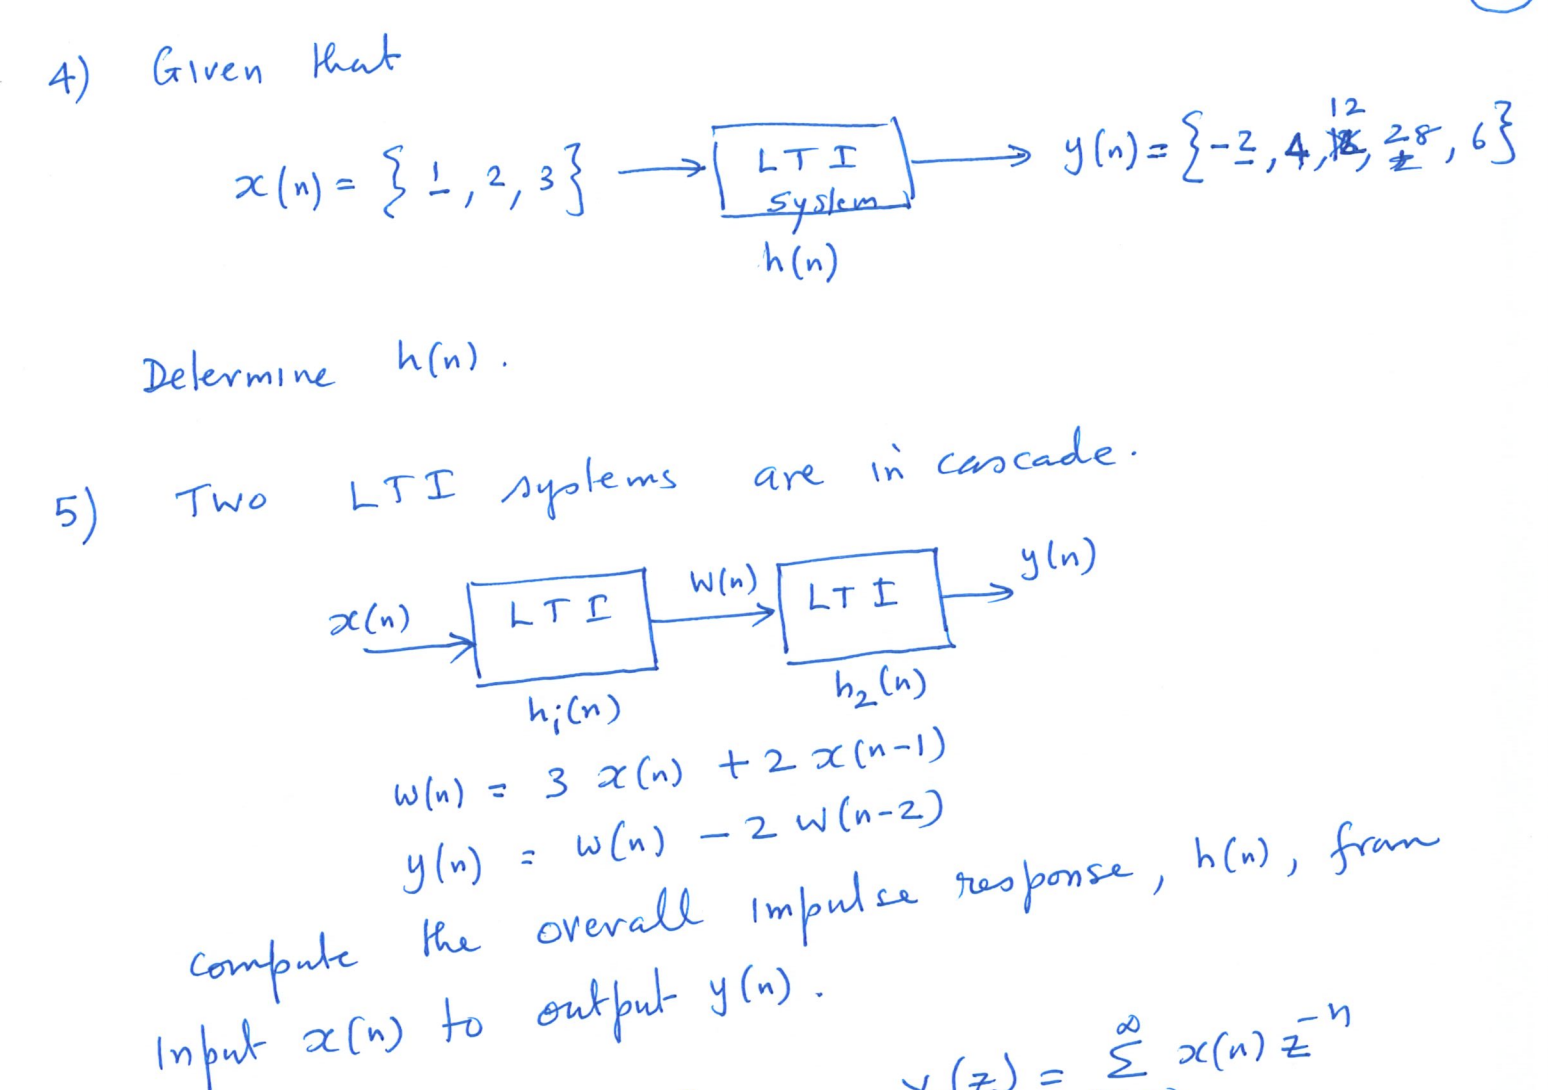 4) Given that
x(n) = { 1, 2, 3 } → LTI system → y(n) = { -2, 4, 12, 28, 6 }
h(n)
Determine h(n).
5) Two LTI systems are in cascade.
x(n) → LTI → w(n) → LTI → y(n)
h1(n) h2(n)
w(n) = 3 x(n) + 2 x(n-1)
y(n) = w(n) - 2 w(n-2)
compute the overall impulse response, h(n), from
input x(n) to output y(n).
X(z) = ∞ Σ x(n) z^-n